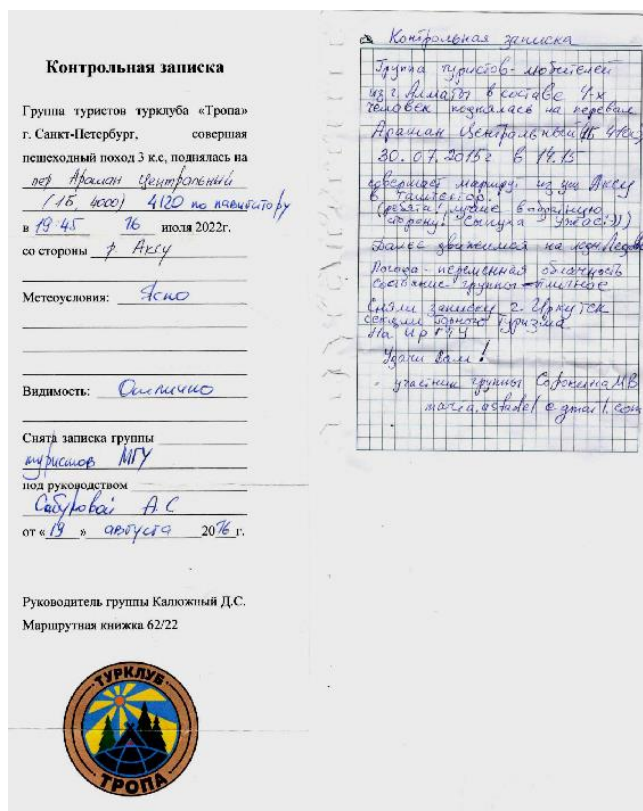 Контрольная записка
Группа туристов турклуба «Тропа»
г. Санкт-Петербург, совершая
пешеходный поход 3 к.с, поднялась на
пер Арашан Центральный
(1Б, 4000) 4120 по навигатору
в 19-45 16 июля 2022г.
со стороны р. Аксу
Метеоусловия: Ясно
Видимость: Отлично
Снята записка группы
туристов МГУ
под руководством
Сабуровой А.С
от «19» августа 2016 г.
Руководитель группы Калюжный Д.С.
Маршрутная книжка 62/22
ТУРКЛУБ
ТРОПА
Контрольная записка
Группа туристов-любителей
из г. Алматы в составе 4-х
человек поднялась на перевал
Арашан Центральный (1Б
30.07.2015г в 14.15
совершает маршрут из ущ Аксу
в
(ребята! лучше в обратную
сторону! Сыпуха - Ужас!:)))
Далее движемся на
Погода - переменная облачность
состояние группы - отличное
Сняли записку г. Иркутск
секции горного туризма
На ИрГТУ
Удачи Вам!
участник группы Сорокина МВ